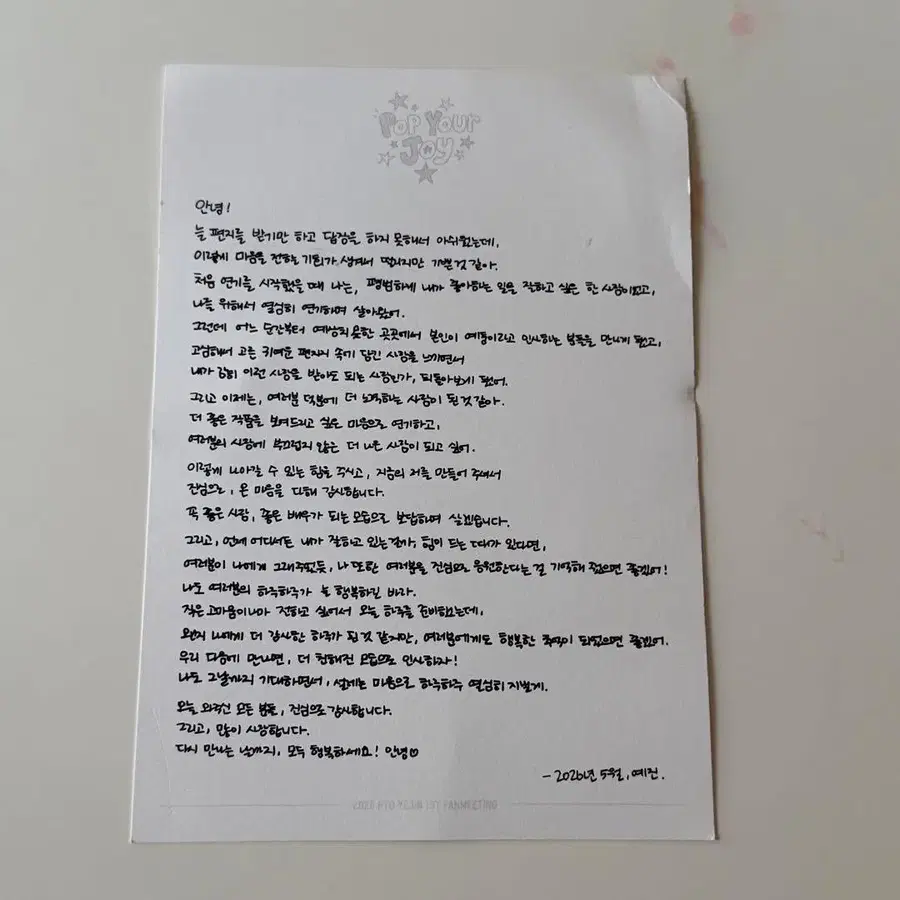 POP YOUR
JOY
안녕!
늘 편지를 받기만 하고 답장을 하지 못해서 아쉬웠는데,
이렇게 마음을 전하는 기회가 생겨서 떨리지만 기쁜 것 같아.
처음 연기를 시작했을 때 나는, 평범하게 내가 좋아하는 일을 잘하고 싶은 한 사람이었고,
나를 위해서 열심히 연기하며 살아왔어.
그런데 어느 순간부터 예상치 못한 곳곳에서 본인이 예둥이라고 인사하는 분들을 만나게 됐고,
고심해서 고른 귀여운 편지지 속에 담긴 사랑을 느끼면서
내가 감히 이런 사랑을 받아도 되는 사람인가, 되돌아보게 됐어.
그리고 이제는, 여러분 덕분에 더 노력하는 사람이 된 것 같아.
더 좋은 작품을 보여드리고 싶은 마음으로 연기하고,
여러분의 사랑에 부끄럽지 않은 더 나은 사람이 되고 싶어.
이렇게 나아갈 수 있는 힘을 주시고, 지금의 저를 만들어 주셔서
진심으로, 온 마음을 다해 감사합니다.
꼭 좋은 사람, 좋은 배우가 되는 모습으로 보답하며 살겠습니다.
그리고, 언제 어디서든 내가 잘하고 있는걸까, 힘이 드는 때가 있다면,
여러분이 나에게 그래주었듯, 나 또한 여러분을 진심으로 응원한다는 걸 기억해 줬으면 좋겠어!
나도 여러분의 하루하루가 늘 행복하길 바라.
작은 고마움이나마 전하고 싶어서 오늘 하루를 준비했는데,
왠지 나에게 더 감사한 하루가 된 것 같지만, 여러분에게도 행복한 추억이 되었으면 좋겠어.
우리 다음에 만나면, 더 친해진 모습으로 인사하자!
나도 그날까지 기대하면서, 설레는 마음으로 하루하루 열심히 지낼게.
오늘 와주신 모든 분들, 진심으로 감사합니다.
그리고, 많이 사랑합니다.
다시 만나는 날까지, 모두 행복하세요! 안녕♡
- 2026년 5월, 예진.
2026 PYO YEJIN 1ST FANMEETING